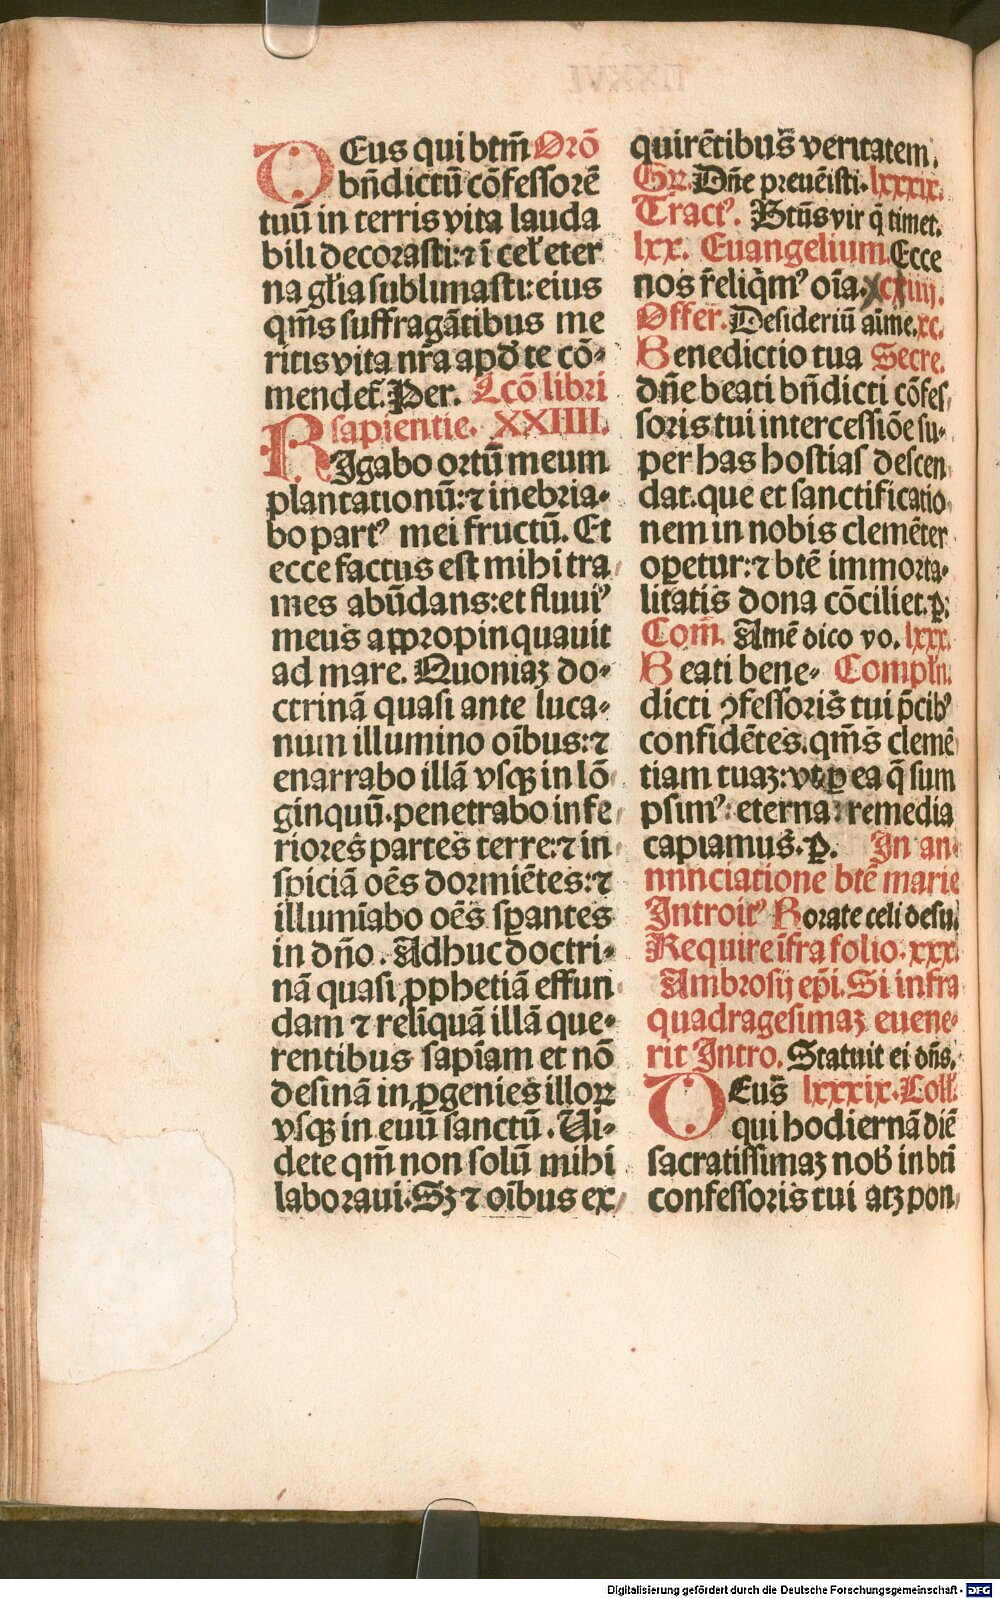 DEus qui btm̄ Orō
bn̄dictū cōfessorē
tuū in terris vita lauda
bili decorasti: ⁊ ī cel' eter
na gl'ia sublimasti: eius
qm̄s suffragātibus me
ritis vita nr̄a apd' te cō⸗
mendet̄. Per. Lcō libri
sapientie. XXIIII.
RIgabo ortū meum
plantationū: ⁊ inebria⸗
bo partꝰ mei fructū. Et
ecce factus est mihi tra⸗
mes abūdans: et fluuiꝰ
meus appropinquauit
ad mare. Quoniaꝫ do⸗
ctrinā quasi ante luca⸗
num illumino oībus: ⁊
enarrabo illā vsqꝫ in lō⸗
ginquū. penetrabo infe⸗
riores partes terre: ⁊ in⸗
spiciā oēs dormiētes: ⁊
illumīabo oēs sꝑantes
in dn̄o. Adhuc doctri⸗
nā quasi ꝓphetiā effun⸗
dam ⁊ relīquā illā que⸗
rentibus sapīam et nō
desinā in ꝓgenies illoꝝ
vsqꝫ in euū sanctū. Ui⸗
dete qm̄ non solū mihi
laboraui. Sꝫ ⁊ oībus ex⸗
quirētibus veritatem.
Gr. Dn̄e preuēisti. lxxxix.
Tractꝰ. Btūs vir q̄ timet.
lxx. Euangelium. Ecce
nos r̄eliq̄mꝰ oīa. xciiij.
Offer. Desideriū aīme. xc.
Benedictio tua Secre.
dn̄e beati bn̄dicti cōfes
soris tui intercessiōe su⸗
per has hostias descen⸗
dat. que et sanctificatio⸗
nem in nobis clemēter
oꝑetur: ⁊ btē immorta⸗
litatis dona cōciliet. ꝑ:
Com̄. Amē dico vo. lxxx.
Beati bene⸗ Compln̄.
dicti ꝯfessoris tui p̄cibꝰ
confidētes. qm̄s clemē
tiam tuaꝫ: vt ꝑ ea q̄ sum
psimꝰ: eterna remedia
capiamus. ꝑ. In an⸗
nnnciatione btē marie
Introitꝰ Rorate celi desu.
Require īfra folio. xxx.
Ambrosij ep̄i. Si infra
quadragesimaꝫ euene⸗
rit Intro. Statuit ei dn̄s.
DEus lxxxix. Coll'.
qui hodiernā diē
sacratissimaꝫ nob' in bti
confessoris tui atꝫ pon⸗